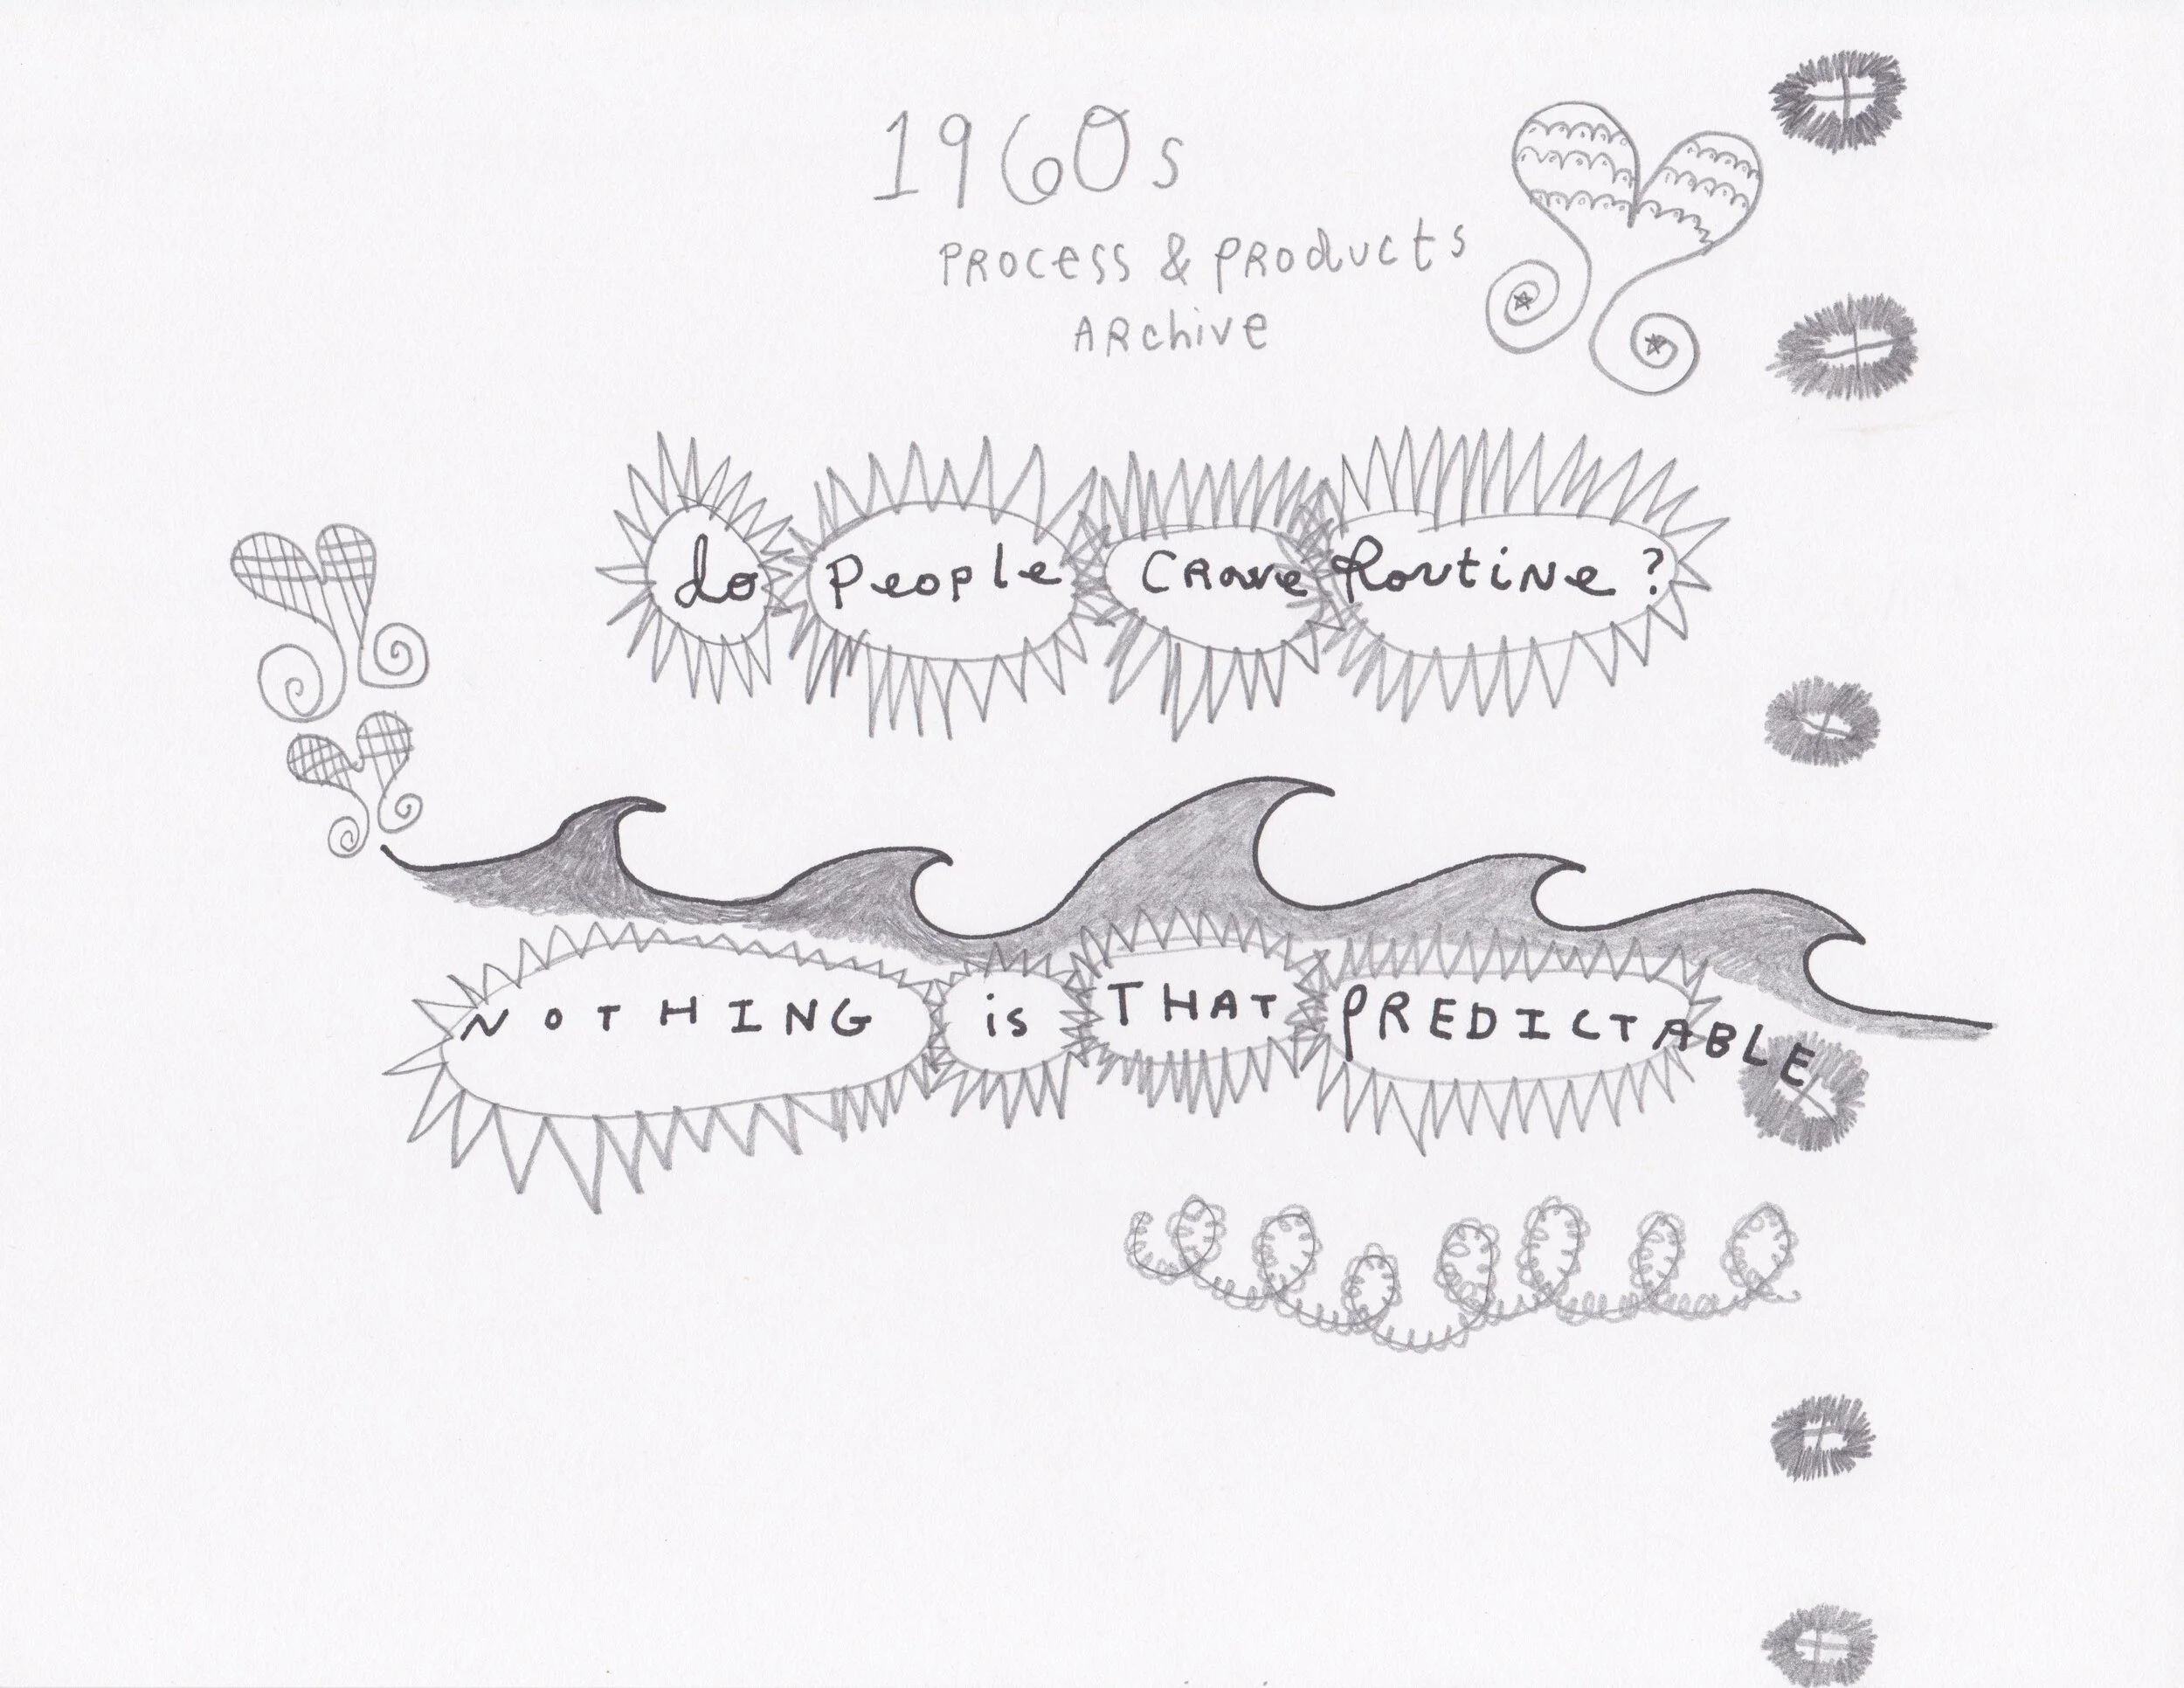 1960s
PROCESS & PRODUCTS
ARchive
do People CRave Routine?
NOTHING is THAT PREDICTABLE